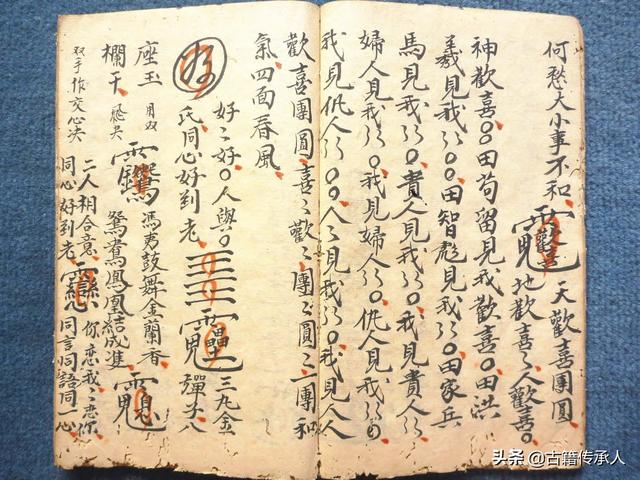 何愁大小事不和
天歡喜團圓
地歡喜〻人歡喜〇
神歡喜〇〇田苟留見我歡喜〇田洪
羲見我〻〻〇〇田智彪見我〻〻〇田家兵
馬見我〻〻〇貴人見我〻〻〇我見貴人〻〻
婦人見我〻〻〇我見婦人〻〻〇仇人見我〻〻〇
我見仇人〻〻〇〇人〻見我〻〻〇我見人人
歡喜團圓喜〻歡〻團〻圓〻一團和
氣四面春風
好〻好〇人與〇
氏同心好到老
三九金
彈大八
座玉
欄干
月双
鼓舞金蘭香
鴛鴦鳳凰結成雙
双手作交心决
二人相合意
同心好到老
你恋我〻恋你
同言同語同一心
头条 @古籍传承人